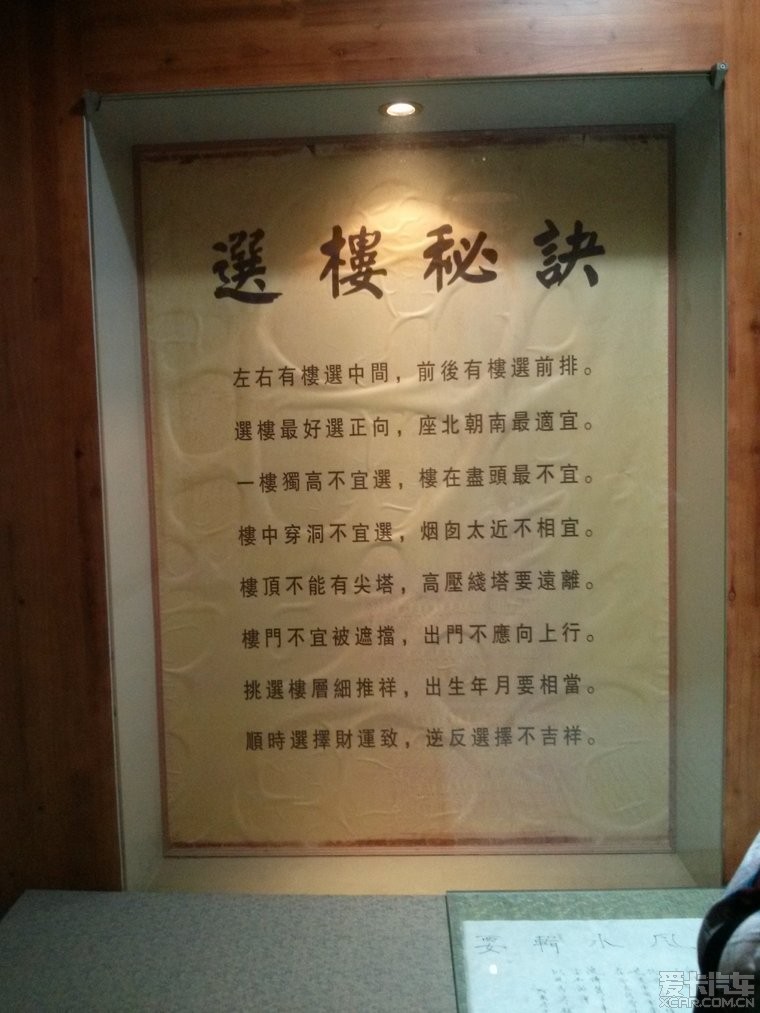 選樓秘訣
左右有樓選中間，前後有樓選前排。
選樓最好選正向，座北朝南最適宜。
一樓獨高不宜選，樓在盡頭最不宜。
樓中穿洞不宜選，烟囱太近不相宜。
樓頂不能有尖塔，高壓綫塔要遠離。
樓門不宜被遮擋，出門不應向上行。
挑選樓層細推祥，出生年月要相當。
順時選擇財運致，逆反選擇不吉祥。
要輪水風
爱卡汽车
XCAR.COM.CN